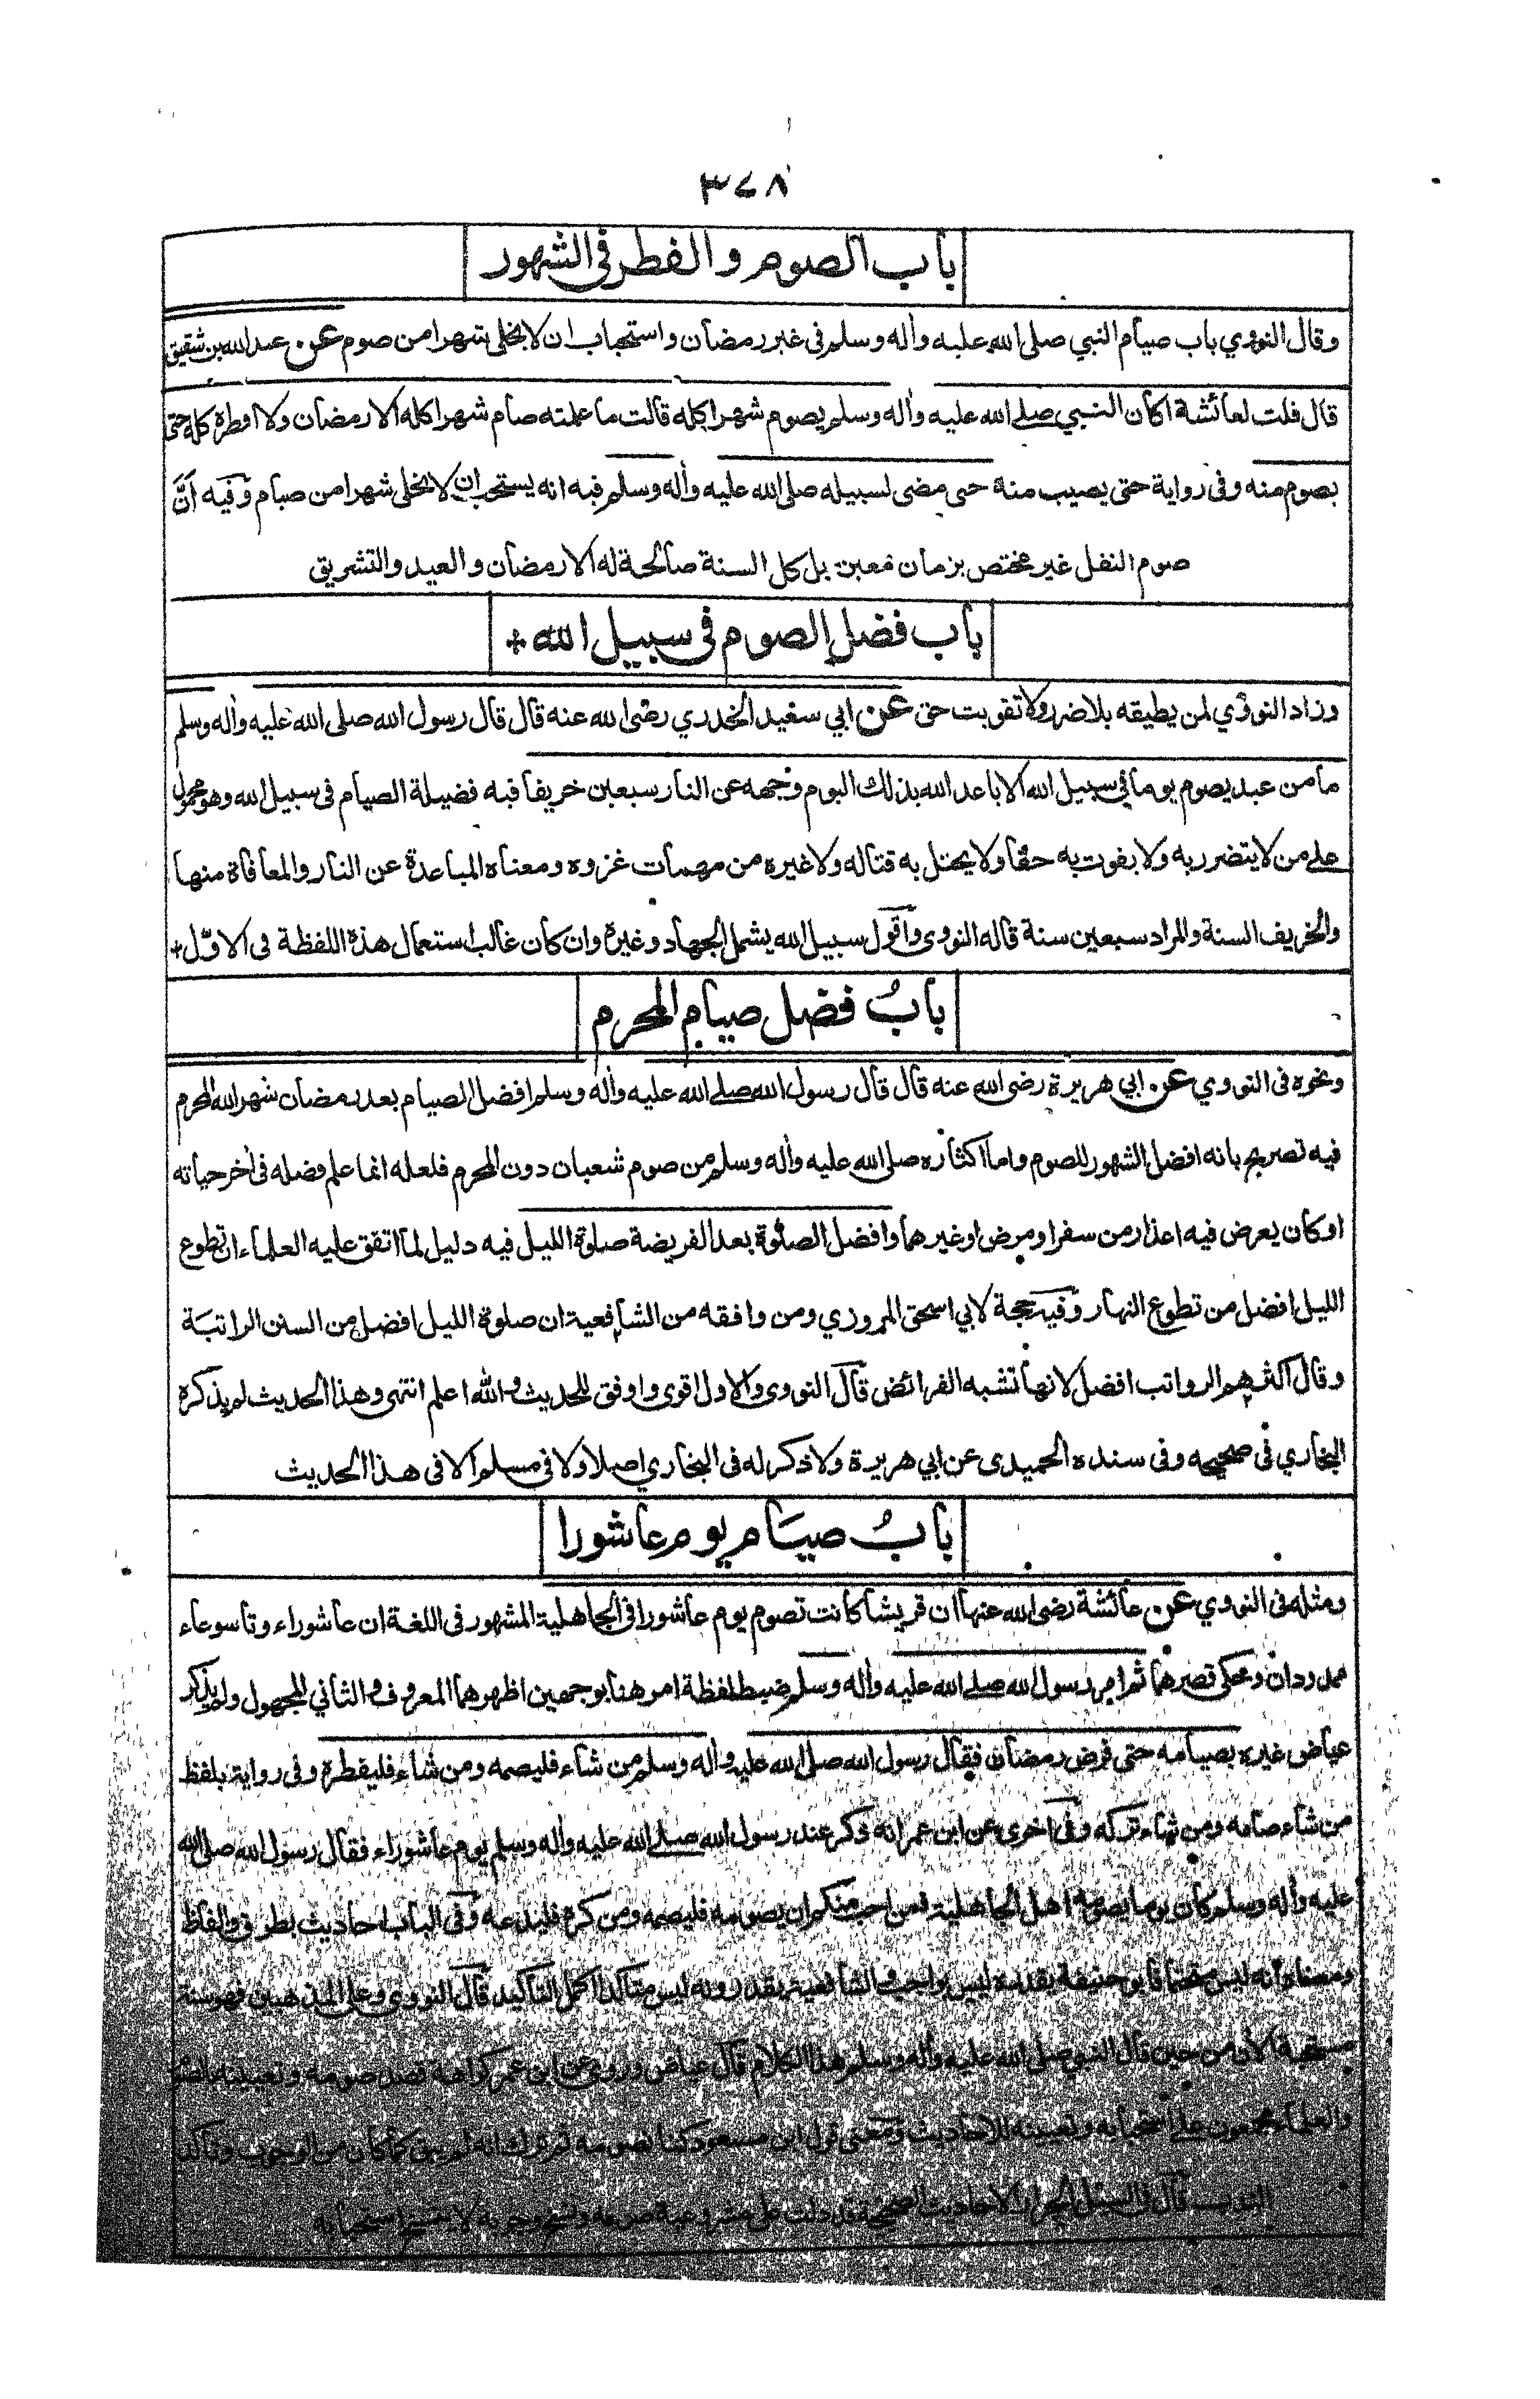 ٣٧٨
باب الصوم والفطر فى الشهور
وقال النووي باب صيام النبي صلى الله عليه وأله وسلم فى غير رمضان واستحباب ان لا يخلى شهرا من صوم عن عبد الله بن شقيق
قال قلت لعائشة اكان النبي صلے الله عليه وأله وسلم يصوم شهرا كله قالت ما علمته صام شهرا كله الا رمضان ولا افطره كله حتى
يصوم منه وفى رواية حتى يصيب منه حتى مضى لسبيله صلى الله عليه وأله وسلم فيه انه يستحب ان لا يخلى شهرا من صيام وفيه أنّ
صوم النفل غير مختص بزمان معين بل كل السنة صالحة له الا رمضان والعيد والتشريق
باب فضل الصوم فى سبيل الله +
وزاد النووي لمن يطيقه بلا ضرر ولا تفويت حق عن ابي سعيد الخدري رضى الله عنه قال قال رسول الله صلى الله عليه وأله وسلم
ما من عبد يصوم يوما في سبيل الله الا باعد الله بذلك اليوم وجهه عن النار سبعين خريفا فيه فضيلة الصيام فى سبيل الله وهو محمول
علے من لا يتضرر به ولا يفوت به حقا ولا يختل به قتاله ولا غيره من مهمات غزوه ومعناه المباعدة عن النار والمعافاة منها
والخريف السنة والمراد سبعين سنة قاله النووى واقول سبيل الله يشمل الجهاد وغيره وان كان غالب استعمال هذه اللفظة فى الاوّل +
بابُ فضل صيام المحرم
ونحوه فى النووي عن ابي هريرة رضى الله عنه قال قال رسول الله صلے الله عليه وأله وسلم افضل الصيام بعد رمضان شهر الله المحرم
فيه تصريح بانه افضل الشهور للصوم واما اكثاره صلى الله عليه وأله وسلم من صوم شعبان دون المحرم فلعله انما علم فضله فى أخر حياته
او كان يعرض فيه اعذار من سفر او مرض او غيرهما وافضل الصلوة بعد الفريضة صلوة الليل فيه دليل لما اتفق عليه العلماء ان تطوع
الليل افضل من تطوع النهار وفيه حجة لابي اسحق المروزي ومن وافقه من الشافعية ان صلوة الليل افضل من السنن الراتبة
وقال اكثرهم الرواتب افضل لانها تشبه الفرائض قال النووى والاول اقوى واوفق للحديث والله اعلم انتهى وهذا الحديث لم يذكره
البخاري فى صحيحه وفى سنده الحميدى عن ابي هريرة ولا ذكر له فى البخاري اصلا ولا فى مسلم الا فى هذا الحديث
بابُ صيام يوم عاشورا
ومثله فى النووي عن عائشة رضى الله عنها ان قريشا كانت تصوم يوم عاشورا فى الجاهلية المشهور فى اللغة ان عاشوراء وتاسوعاء
ممدودان وحكى قصرهما ثم امر رسول الله صلے الله عليه وأله وسلم ضبط لفظة امر هنا بوجهين اظهرهما المعروف والثاني المجهول ولم يذكر
عياض غيره بصيامه حتى فرض رمضان فقال رسول الله صلى الله عليه وأله وسلم من شاء فليصمه ومن شاء فليفطره وفى رواية بلفظ
من شاء صامه ومن شاء تركه وفى اخرى عن ابن عمر انه ذكر عند رسول الله صلے الله عليه وأله وسلم يوم عاشوراء فقال رسول الله صلى الله
عليه وأله وسلم كان يوما يصومه اهل الجاهلية فمن احب منكم ان يصومه فليصمه ومن كره فليدعه وفى الباب احاديث بطرق والفاظ
ومعناه أنه ليس متحتما فابو حنيفة يقدره ليس بواجب والشافعية يقدرونه ليس متاكدا اكمل التاكيد قال النووي وعلى المذهبين فهو سنة
مستحبة الأن من حين قال النبي صلى الله عليه وأله وسلم هذا الكلام قال عياض وروى عن ابن عمر كراهة قصد صومه وتعيينه
والعلماء مجمعون على استحبابه وتعيينه للاحاديث ومعنى قول ابن مسعود كنا نصومه ثم ترك انه لم يبق كما كان من الوجوب وتأكد
الندب قال فى السيل الجرار الاحاديث الصحيحة قد دلت على مشروعية صومه ونسخ وجوبه لا ينسخ استحبابه